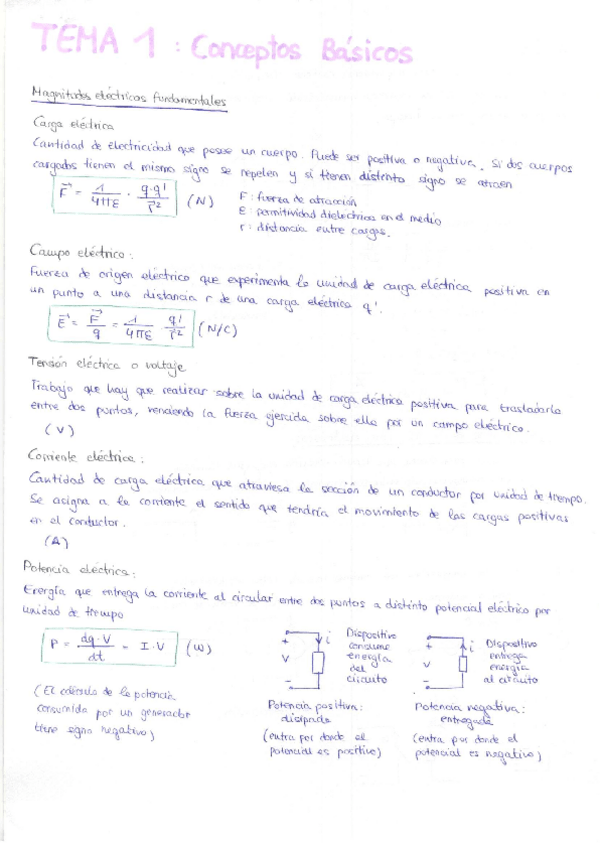 TEMA 1 : Conceptos Básicos
Magnitudes eléctricas fundamentales
Carga eléctrica
Cantidad de electricidad que posee un cuerpo. Puede ser positiva o negativa. Si dos cuerpos
cargados tienen el mismo signo se repelen y si tienen distinto signo se atraen
F⃗ = 1/4πε · q·q'/r⃗² (N)
F : fuerza de atracción
ε : permitividad dieléctrica en el medio
r : distancia entre cargas.
Campo eléctrico :
Fuerza de origen eléctrico que experimenta la unidad de carga eléctrica positiva en
un punto a una distancia r de una carga eléctrica q'.
E⃗ = F⃗/q = 1/4πε q'/r⃗² (N/C)
Tensión eléctrica o voltaje
Trabajo que hay que realizar sobre la unidad de carga eléctrica positiva para trasladarla
entre dos puntos, venciendo la fuerza ejercida sobre ella por un campo eléctrico.
(V)
Corriente eléctrica :
Cantidad de carga eléctrica que atraviesa la sección de un conductor por unidad de tiempo.
Se asigna a la corriente el sentido que tendría el movimiento de las cargas positivas
en el conductor.
(A)
Potencia eléctrica :
Energía que entrega la corriente al circular entre dos puntos a distinto potencial eléctrico por
unidad de tiempo
P = dq·V/dt = I·V (W)
(El cálculo de la potencia
consumida por un generador
tiene signo negativo)
+ V - i
Dispositivo
consume
energía
del
circuito
Potencia positiva :
disipada
(entra por donde el
potencial es positivo)
+ V - i
Dispositivo
entrega
energía
al circuito
Potencia negativa :
entregada
(entra por donde el
potencial es negativo)